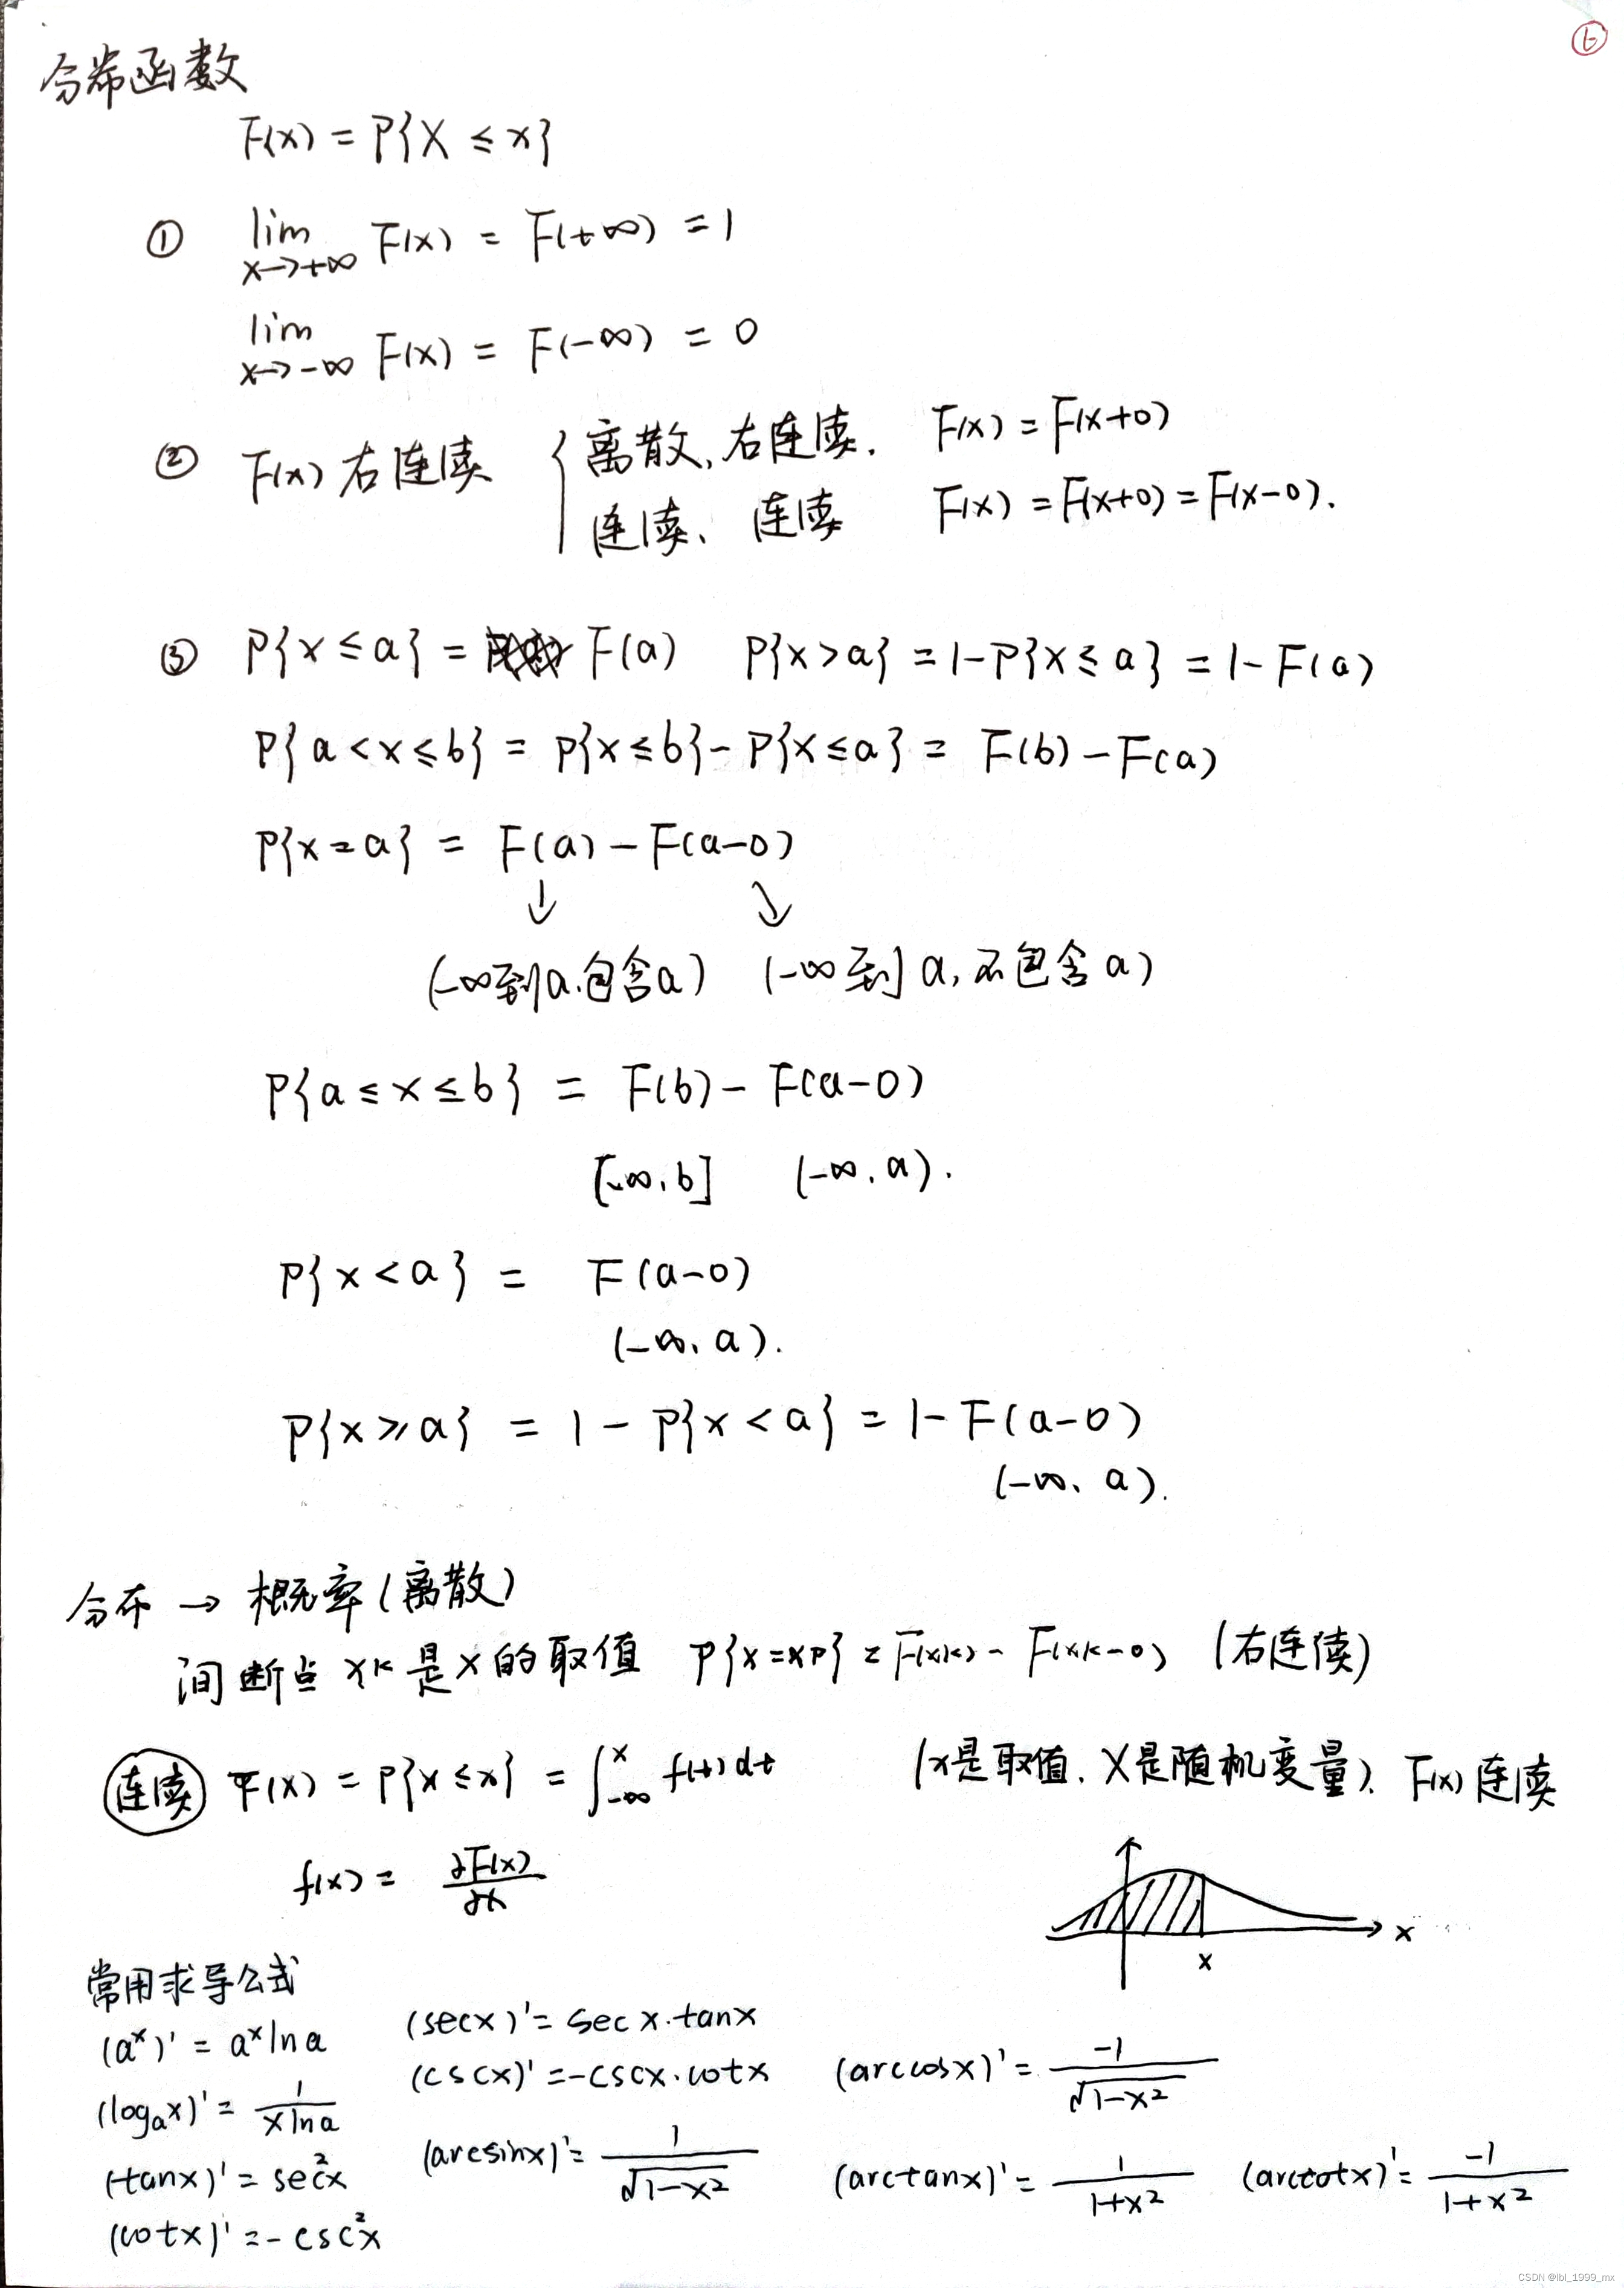 ⑥
分布函数
F(x) = P{X ≤ x}
① lim x→+∞ F(x) = F(+∞) = 1
lim x→-∞ F(x) = F(-∞) = 0
② F(x) 右连续 { 离散, 右连续. F(x) = F(x+0)
连续、 连续 F(x) = F(x+0) = F(x-0).
③ P{x ≤ a} = F(a) P{x > a} = 1-P{x ≤ a} = 1- F(a)
P{a < x ≤ b} = P{x ≤ b} - P{x ≤ a} = F(b) - F(a)
P{x = a} = F(a) - F(a-0)
↓ ↘
(-∞到a.包含a) (-∞到a, 不包含a)
P{a ≤ x ≤ b} = F(b) - F(a-0)
[-∞, b] (-∞, a).
P{x < a} = F(a-0)
(-∞、a).
P{x ≥ a} = 1 - P{x < a} = 1- F(a-0)
(-∞、a).
分布 → 概率(离散)
间断点 xk 是 x 的取值 P{x=xp} = F(xk) - F(xk-0) (右连续)
连续 F(x) = P{x ≤ x} = ∫_{-∞}^{x} f(t) dt (x是取值. X是随机变量). F(x) 连续
f(x) = ∂F(x)/∂x
x
x
常用求导公式
(a^x)' = a^x ln a (secx)' = sec x·tanx
(log_a x)' = 1/(x ln a) (cscx)' = -cscx·cotx (arccosx)' = -1/√(1-x²)
(tanx)' = sec²x (arcsinx)' = 1/√(1-x²) (arctanx)' = 1/(1+x²) (arccotx)' = -1/(1+x²)
(cotx)' = -csc²x
CSDN @lbl_1999_mx